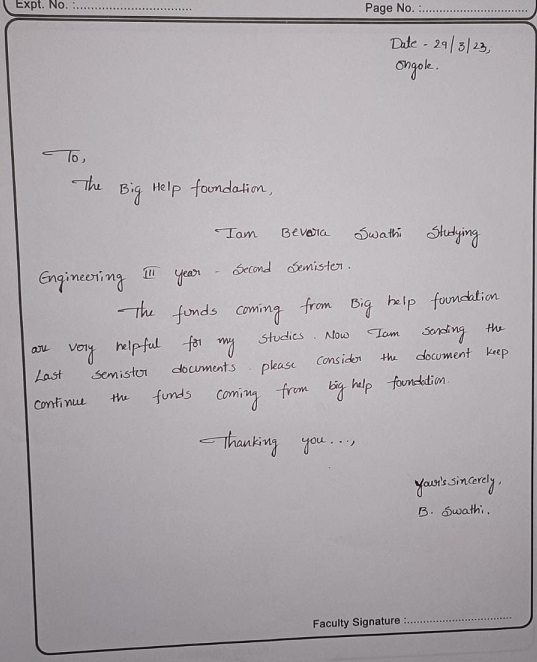 Expt. No. :
Page No. :
Date - 29/3/23,
Ongole.
To,
The Big Help foundation,
I am Bevara Swathi Studying
Engineering III year - Second Semister.
The funds coming from Big help foundation
are very helpful for my studies. Now I am sending the
Last semistor documents. please consider the document keep
continue the funds coming from big help foundation.
Thanking you...,
your's sincerely,
B. Swathi.
Faculty Signature :